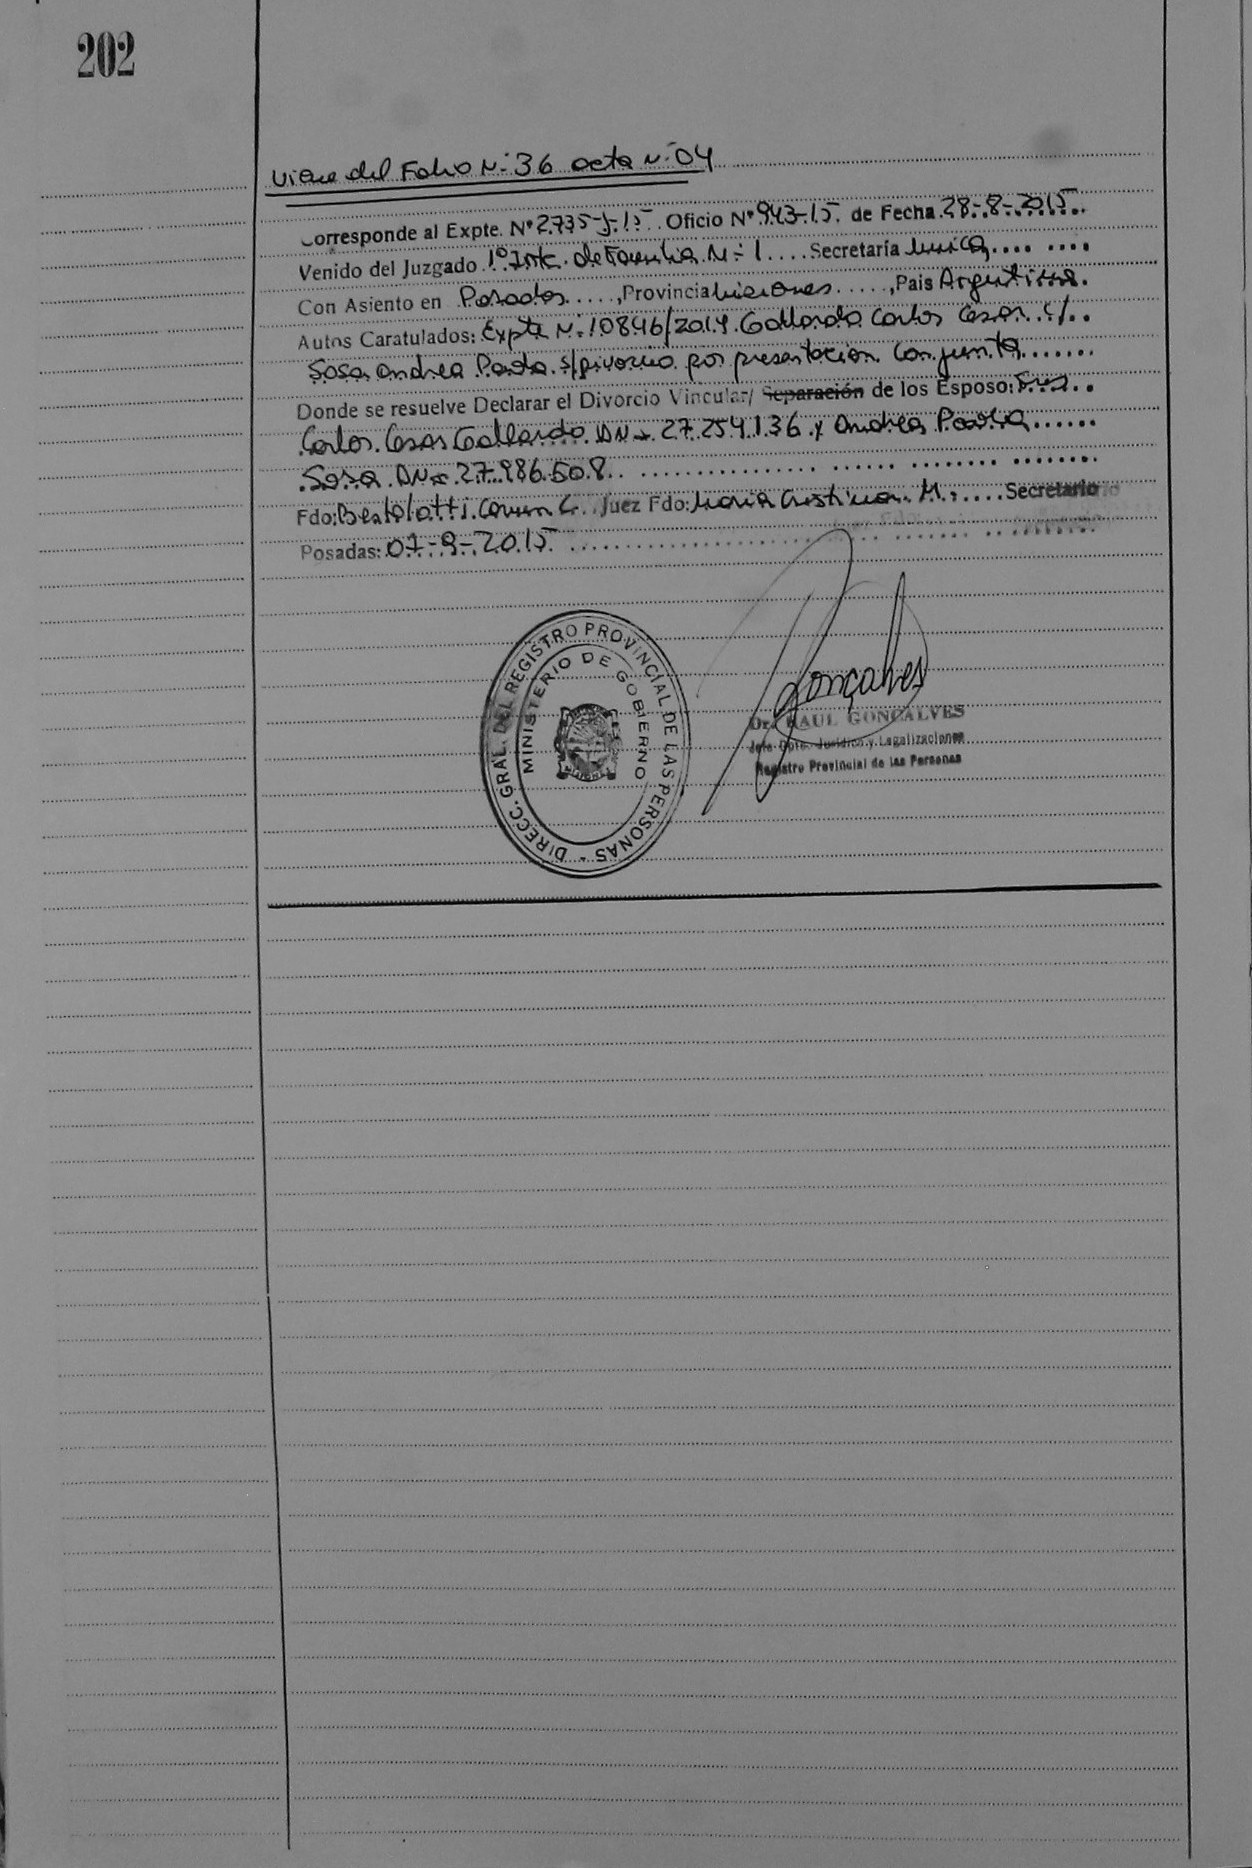 202
Viene del Folio N° 36 acta N° 04
Corresponde al Expte. N° 2735-J-15 Oficio N° 943-15. de Fecha 28-8-2015
Venido del Juzgado 1° Inst. de Familia N° 1 .... Secretaría Unica .... ....
Con Asiento en Posadas ....., Provincia Misiones ....., Pais Argentina.
Autos Caratulados: Expte N° 10846/2014 Gallardo Carlos Cesar c/..
Sosa Andrea Paola s/Divorcio por presentacion Conjunta.......
Donde se resuelve Declarar el Divorcio Vincular/ Separación de los Esposo:
Carlos Cesar Gallardo DNI 27.254.136 y Andrea Paola......
Sosa DNI 27.986.508.
Fdo: Bertolotti Carmen C. Juez Fdo: Maria Cristina M. .... Secretario
Posadas: 07-9-2015
DIRECC. GRAL. DEL REGISTRO PROVINCIAL DE LAS PERSONAS -
MINISTERIO DE GOBIERNO
Gonçalves
Dr. RAUL GONCALVES
Jefe Dpto. Jurídico y Legalizaciones
Registro Provincial de las Personas